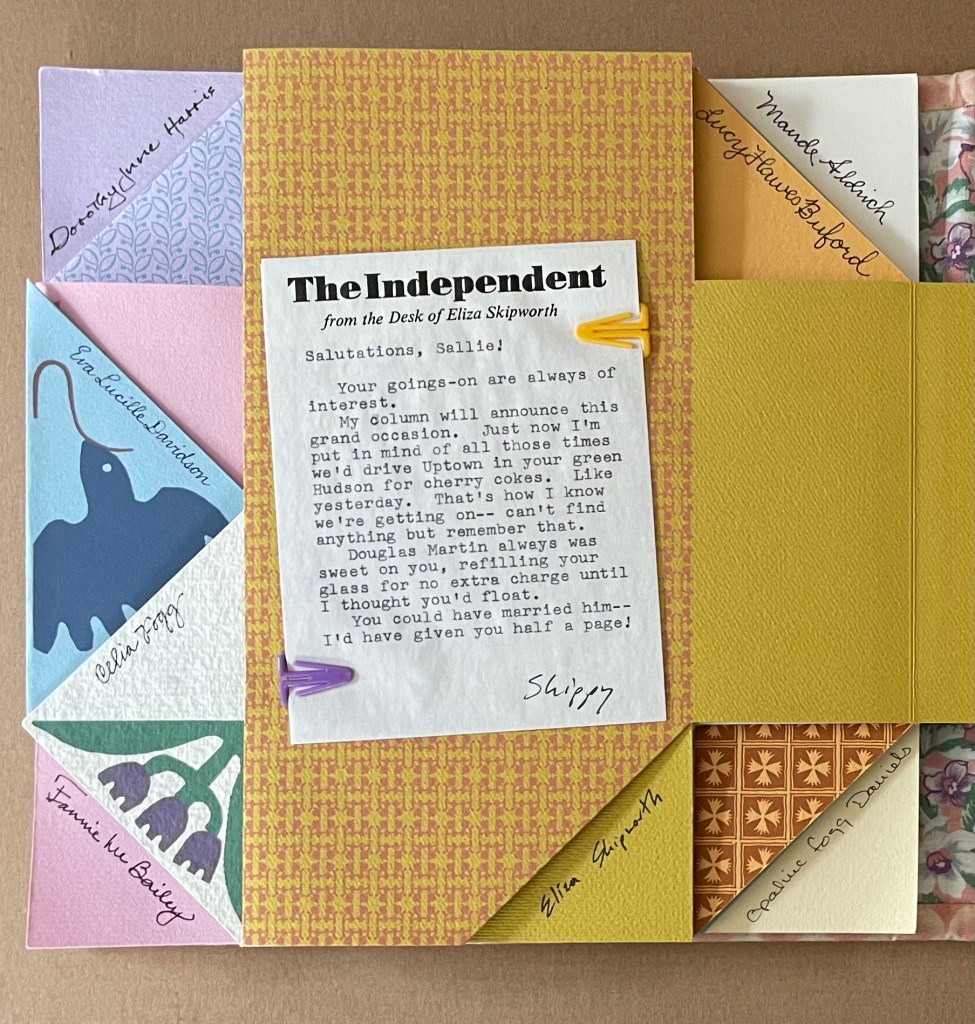 Dorothy June Harris
Maude Aldrich
Lucy Hawes Buford
The Independent
from the Desk of Eliza Skipworth
Salutations, Sallie!
Your goings-on are always of
interest.
My column will announce this
grand occasion.  Just now I'm
put in mind of all those times
we'd drive Uptown in your green
Hudson for cherry cokes.  Like
yesterday.  That's how I know
we're getting on-- can't find
anything but remember that.
Douglas Martin always was
sweet on you, refilling your
glass for no extra charge until
I thought you'd float.
You could have married him--
I'd have given you half a page!
Skippy
Eva Lucille Davidson
Celia Fogg
Fannie Lu Bailey
Eliza Skipworth
Opaline Fogg Daniels